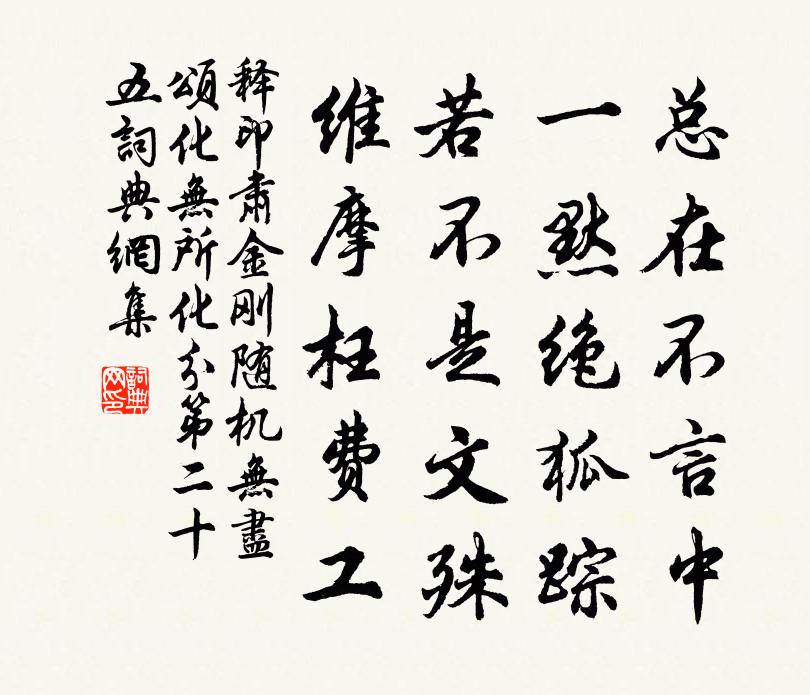 总在不言中
一默绝狐踪
若不是文殊
维摩枉费工
释印肃金刚随机無盡
頌化無所化分第二十
五詞典網集
詞典
网印